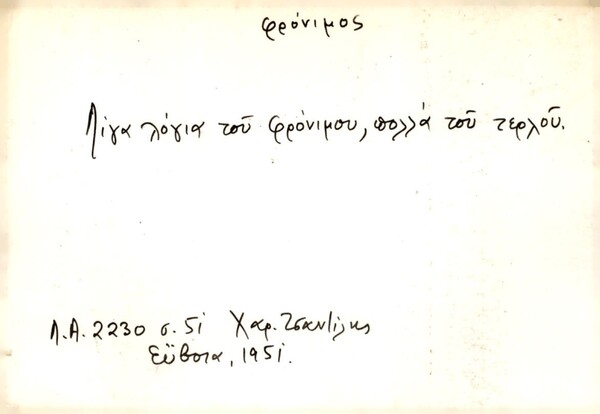 φρόνιμος
Λίγα λόγια τοῦ φρόνιμου, πολλά τοῦ τερλοῦ.
Λ.Α. 2230 σ. 51 Χαρ. Τσαντίλης
Εὔβοια, 1951.